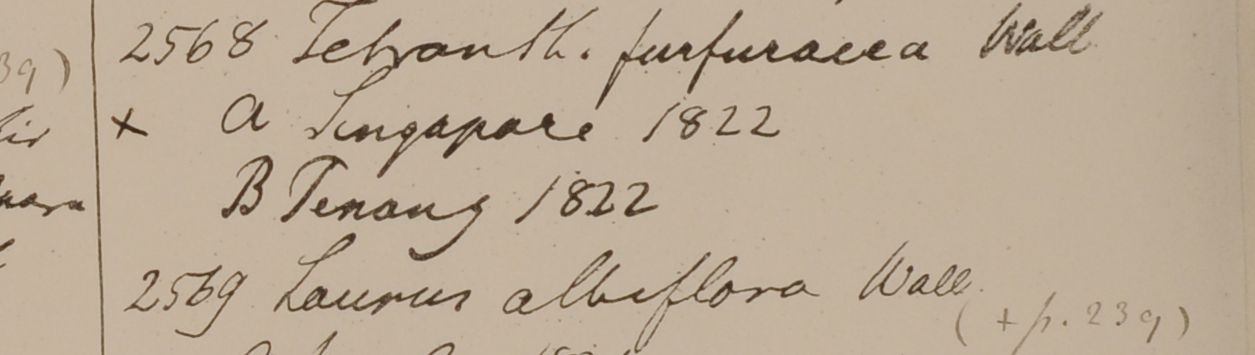 2568 Tetranth. furfuracea Wall
+ a Singapore 1822
B Penang 1822
2569 Laurus albiflora Wall
(+ p. 239)